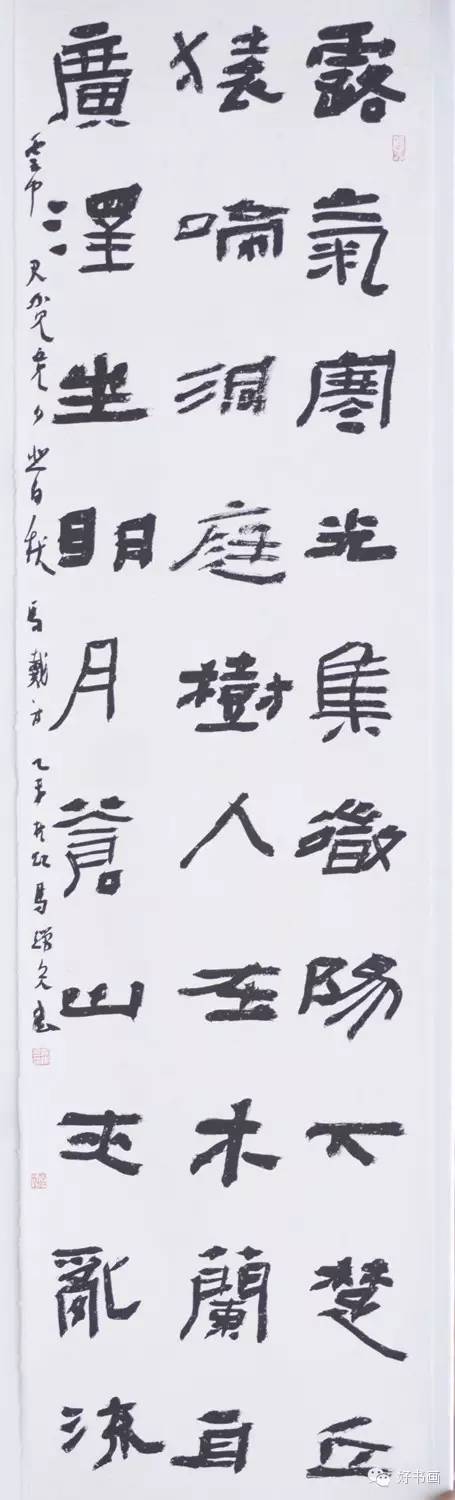 露氣寒光集微陽下楚丘
猿啼洞庭樹人在木蘭舟
廣澤生明月蒼山夾亂流
雲中君不見竟夕 秋 馬戴詩 乙未 馬 書
好书画